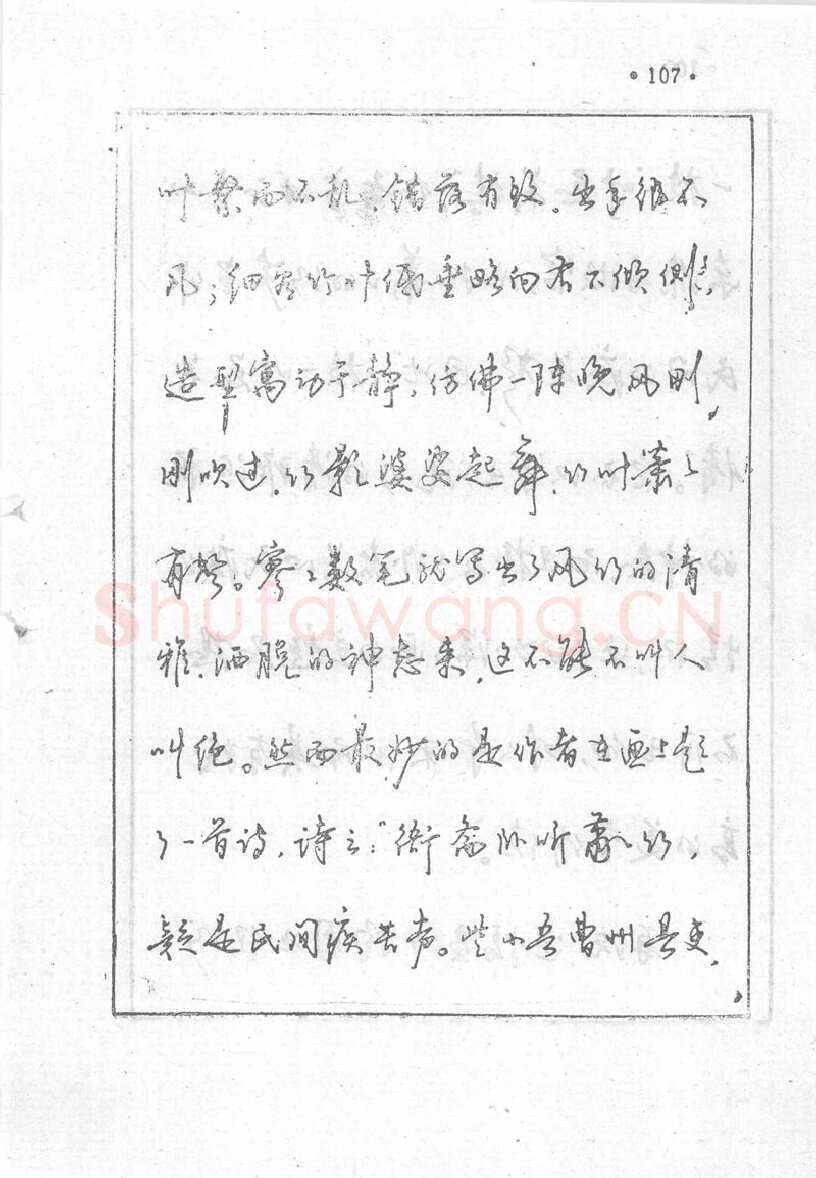 •107•
叶繁而不乱、错落有致。出手很不
凡；细看竹叶低垂略向右下倾侧，
造型寓动于静；仿佛一阵晚风刚
刚吹过，竹影婆娑起舞，竹叶萧萧
有声。寥寥数笔就写出了风竹的清
雅、洒脱的神态来，这不能不叫人
叫绝。然而最妙的是作者在画上题
了一首诗，诗云：“衙斋卧听萧萧竹，
疑是民间疾苦声。些小吾曹州县吏，
Shufawang.CN